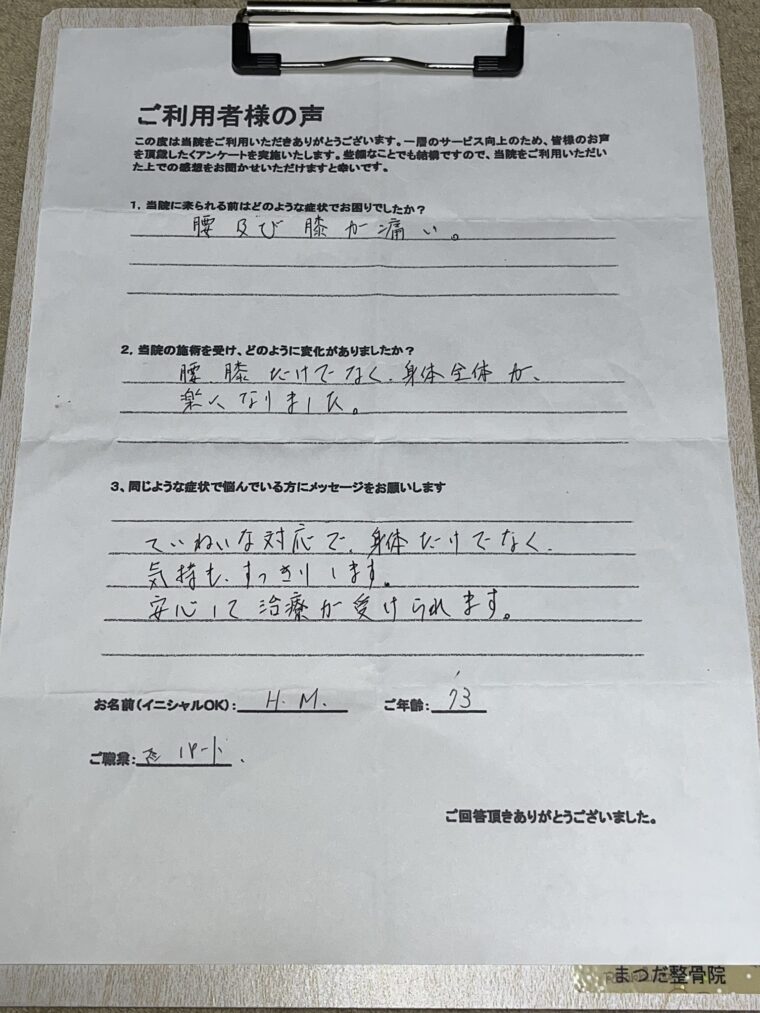 ご利用者様の声
この度は当院をご利用いただきありがとうございます。一層のサービス向上のため、皆様のお声
を頂戴したくアンケートを実施いたします。些細なことでも結構ですので、当院をご利用いただい
た上での感想をお聞かせいただけますと幸いです。
1. 当院に来られる前はどのような症状でお困りでしたか？
腰及び膝が痛い。
2. 当院の施術を受け、どのように変化がありましたか？
腰、膝だけでなく、身体全体が、
楽になりました。
3、同じような症状で悩んでいる方にメッセージをお願いします
ていねいな対応で、身体だけでなく、
気持も、すっきりします。
安心して治療が受けられます。
お名前(イニシャルOK)： H. M. ご年齢： 73
ご職業： パート
ご回答頂きありがとうございました。
まつだ整骨院